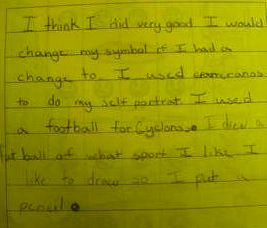 I think I did very good I would
change my symbol if I had a
change to. I used
to do my self portrat I used
a football for Cyclons. I drew a
ball of what sport I like I
like to draw so I put a
pencil.